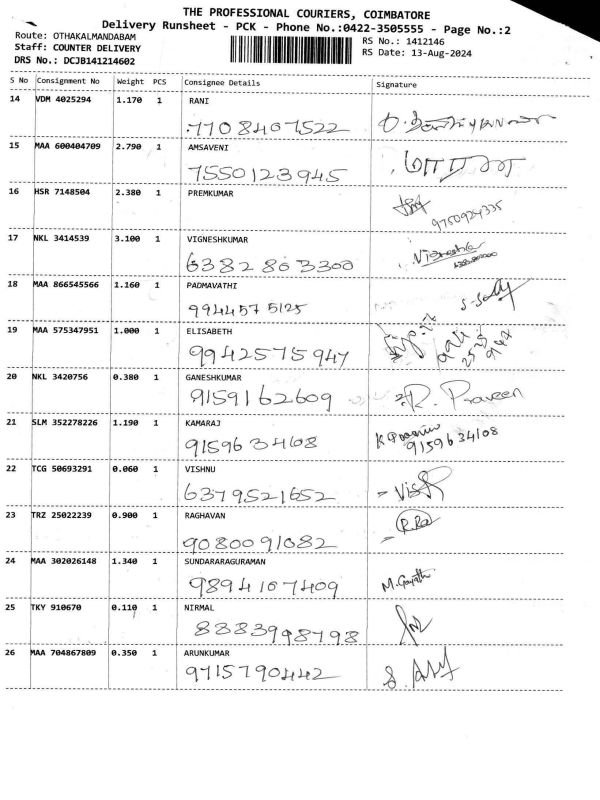 THE PROFESSIONAL COURIERS, COIMBATORE
Delivery Runsheet - PCK - Phone No.:0422-3505555 - Page No.:2
Route: OTHAKALMANDABAM
Staff: COUNTER DELIVERY
DRS No.: DCJB141214602
RS No.: 1412146
RS Date: 13-Aug-2024
S No Consignment No Weight PCS Consignee Details Signature
14 VDM 4025294 1.170 1 RANI
7708407522
15 MAA 600404709 2.790 1 AMSAVENI
7550123945 மாரஸ்
16 HSR 7148504 2.380 1 PREMKUMAR
9750924335
17 NKL 3414539 3.100 1 VIGNESHKUMAR
6382803300 Vignesh
18 MAA 866545566 1.160 1 PADMAVATHI
9944575125
19 MAA 575347951 1.000 1 ELISABETH
9942575947
20 NKL 3420756 0.380 1 GANESHKUMAR
9159162609 R. Praveen
21 SLM 352278226 1.190 1 KAMARAJ
9159634108 9159634108
22 TCG 50693291 0.060 1 VISHNU
6379521652
23 TRZ 25022239 0.900 1 RAGHAVAN
9080091082
24 MAA 302026148 1.340 1 SUNDARARAGURAMAN
9894107409 M. Gayathri
25 TKY 910670 0.110 1 NIRMAL
8383998798
26 MAA 704867809 0.350 1 ARUNKUMAR
9715790442